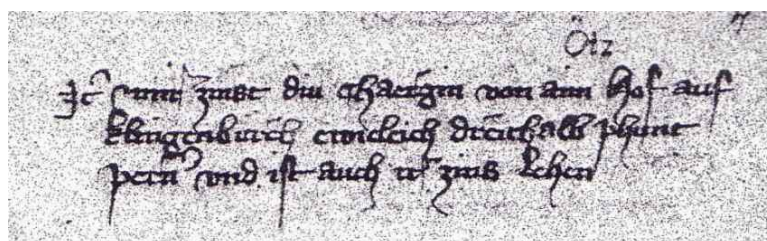 Ötz
It̃ mir zinst diu chaergin von ain hof auf
klingenburch ewicleich dreithalb phunt
pern̄ vnd ist auch ir zins lehen